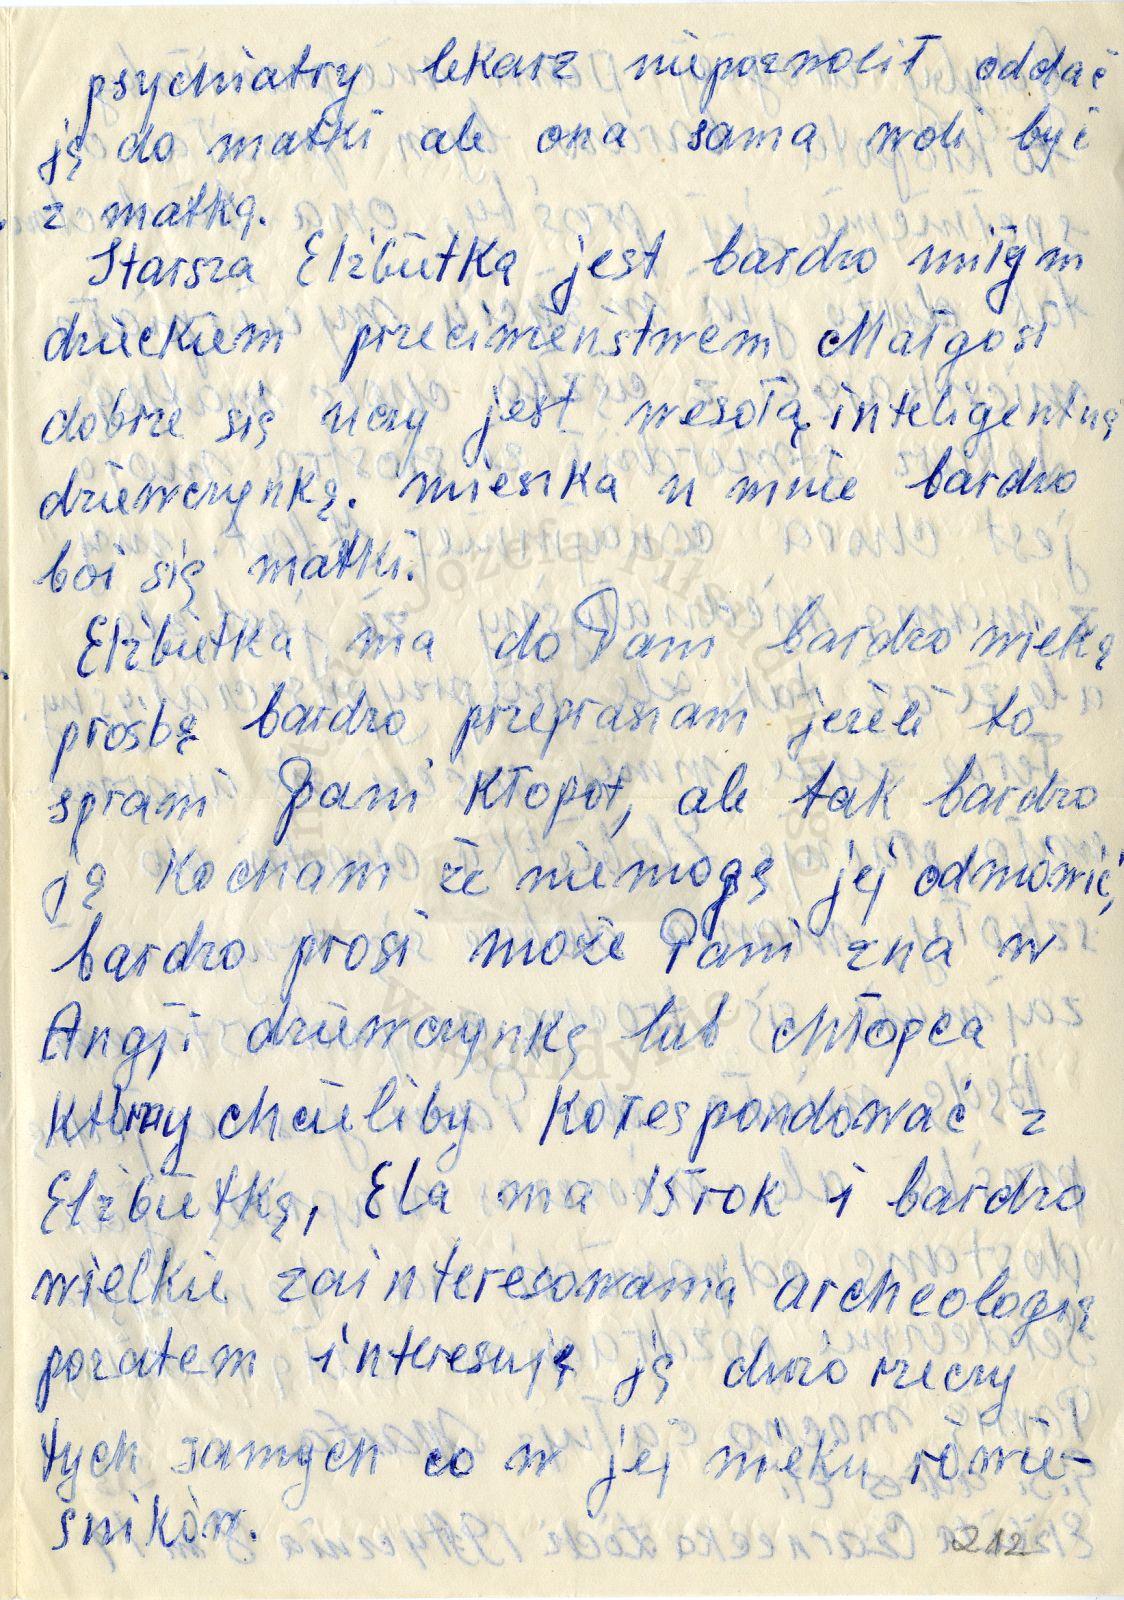 psychiatry lekarz niepozwolił oddać
ją do matki ale ona sama woli być
z matką.
Starsza Elżbietką jest bardzo miłym
dzieckiem przeciwieństwem Małgosi
dobrze się uczy jest wesołą inteligentną
dziewczynką. mieszka u mnie bardzo
boi się matki.
Elżbietka ma do Pani bardzo wieką
prośbę bardzo przeprasiam jeżeli to
sprawi Pani kłopot, ale tak bardzo
ją kocham że niemogę jej odmówić,
bardzo prosi może Pani zna w
Angji dziewczynkę lub chłopca
którzy chcieliby korespondować z
Elżbietką, Ela ma 15 rok i bardzo
wielkie zainteresowania archeologią
pozatem interesuję ją dużo rzeczy
tych samych co w jej wieku rówie-
śników.
212